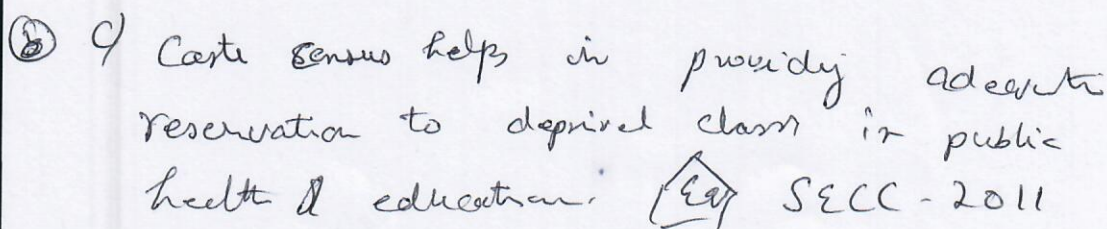 ⑥ c) Caste census helps in providing adequate
reservation to deprived class in public
health & education. Eg SECC - 2011